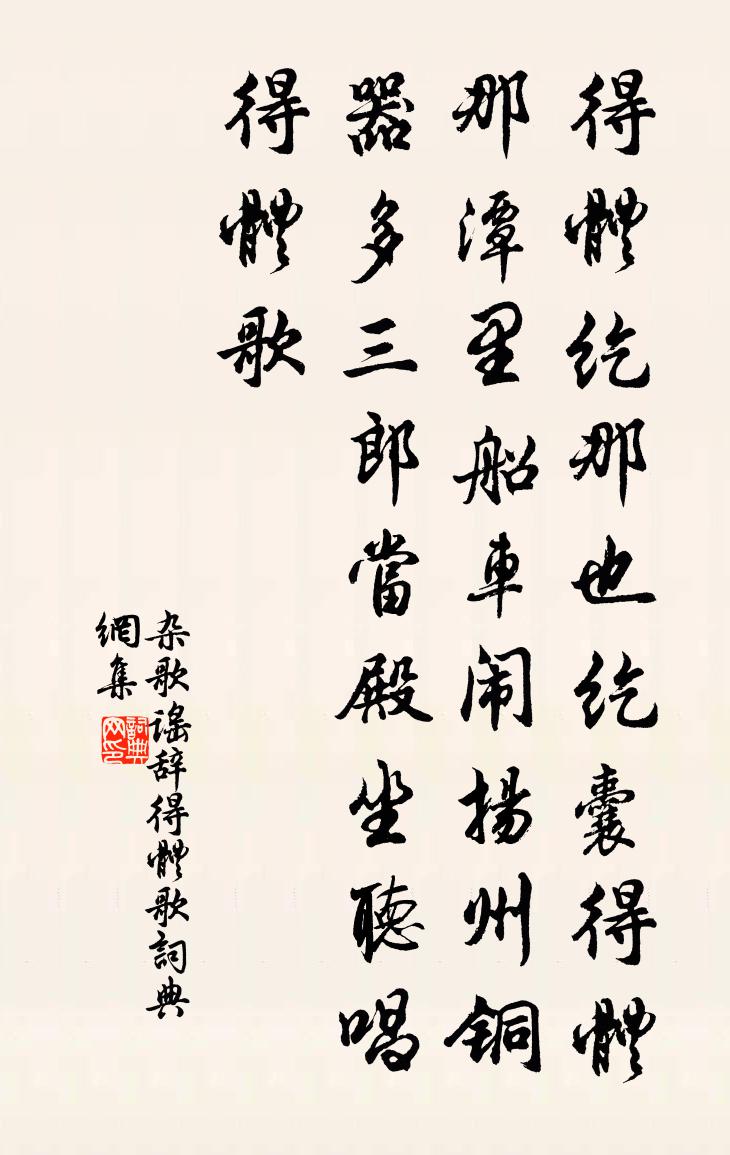 得體紇那也紇囊得體
那潭里船車闹揚州铜
器多三郎當殿坐聽唱
得體歌
杂歌謡辞得體歌詞典
網集
詞典
网印